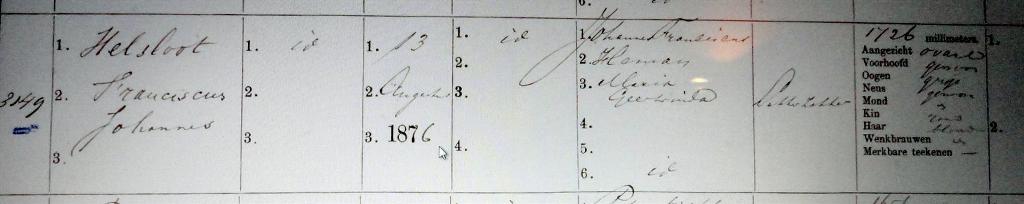 6. id
3149
1. Helsloot
2. Franciscus
Johannes
3.
1. id
2.
3.
1. 13
2. Augustus
3. 1876
1. id
2.
3.
4.
1. Johannes Franciscus
2. Heman
3. Maria
Geertruida
4.
5.
6. id
Letterzetter
1726 millimeters.
Aangezicht ovaal
Voorhoofd gewoon
Oogen grijs
Neus gewoon
Mond "
Kin rond
Haar blond
Wenkbrauwen "
Merkbare teekenen —
1.
2.